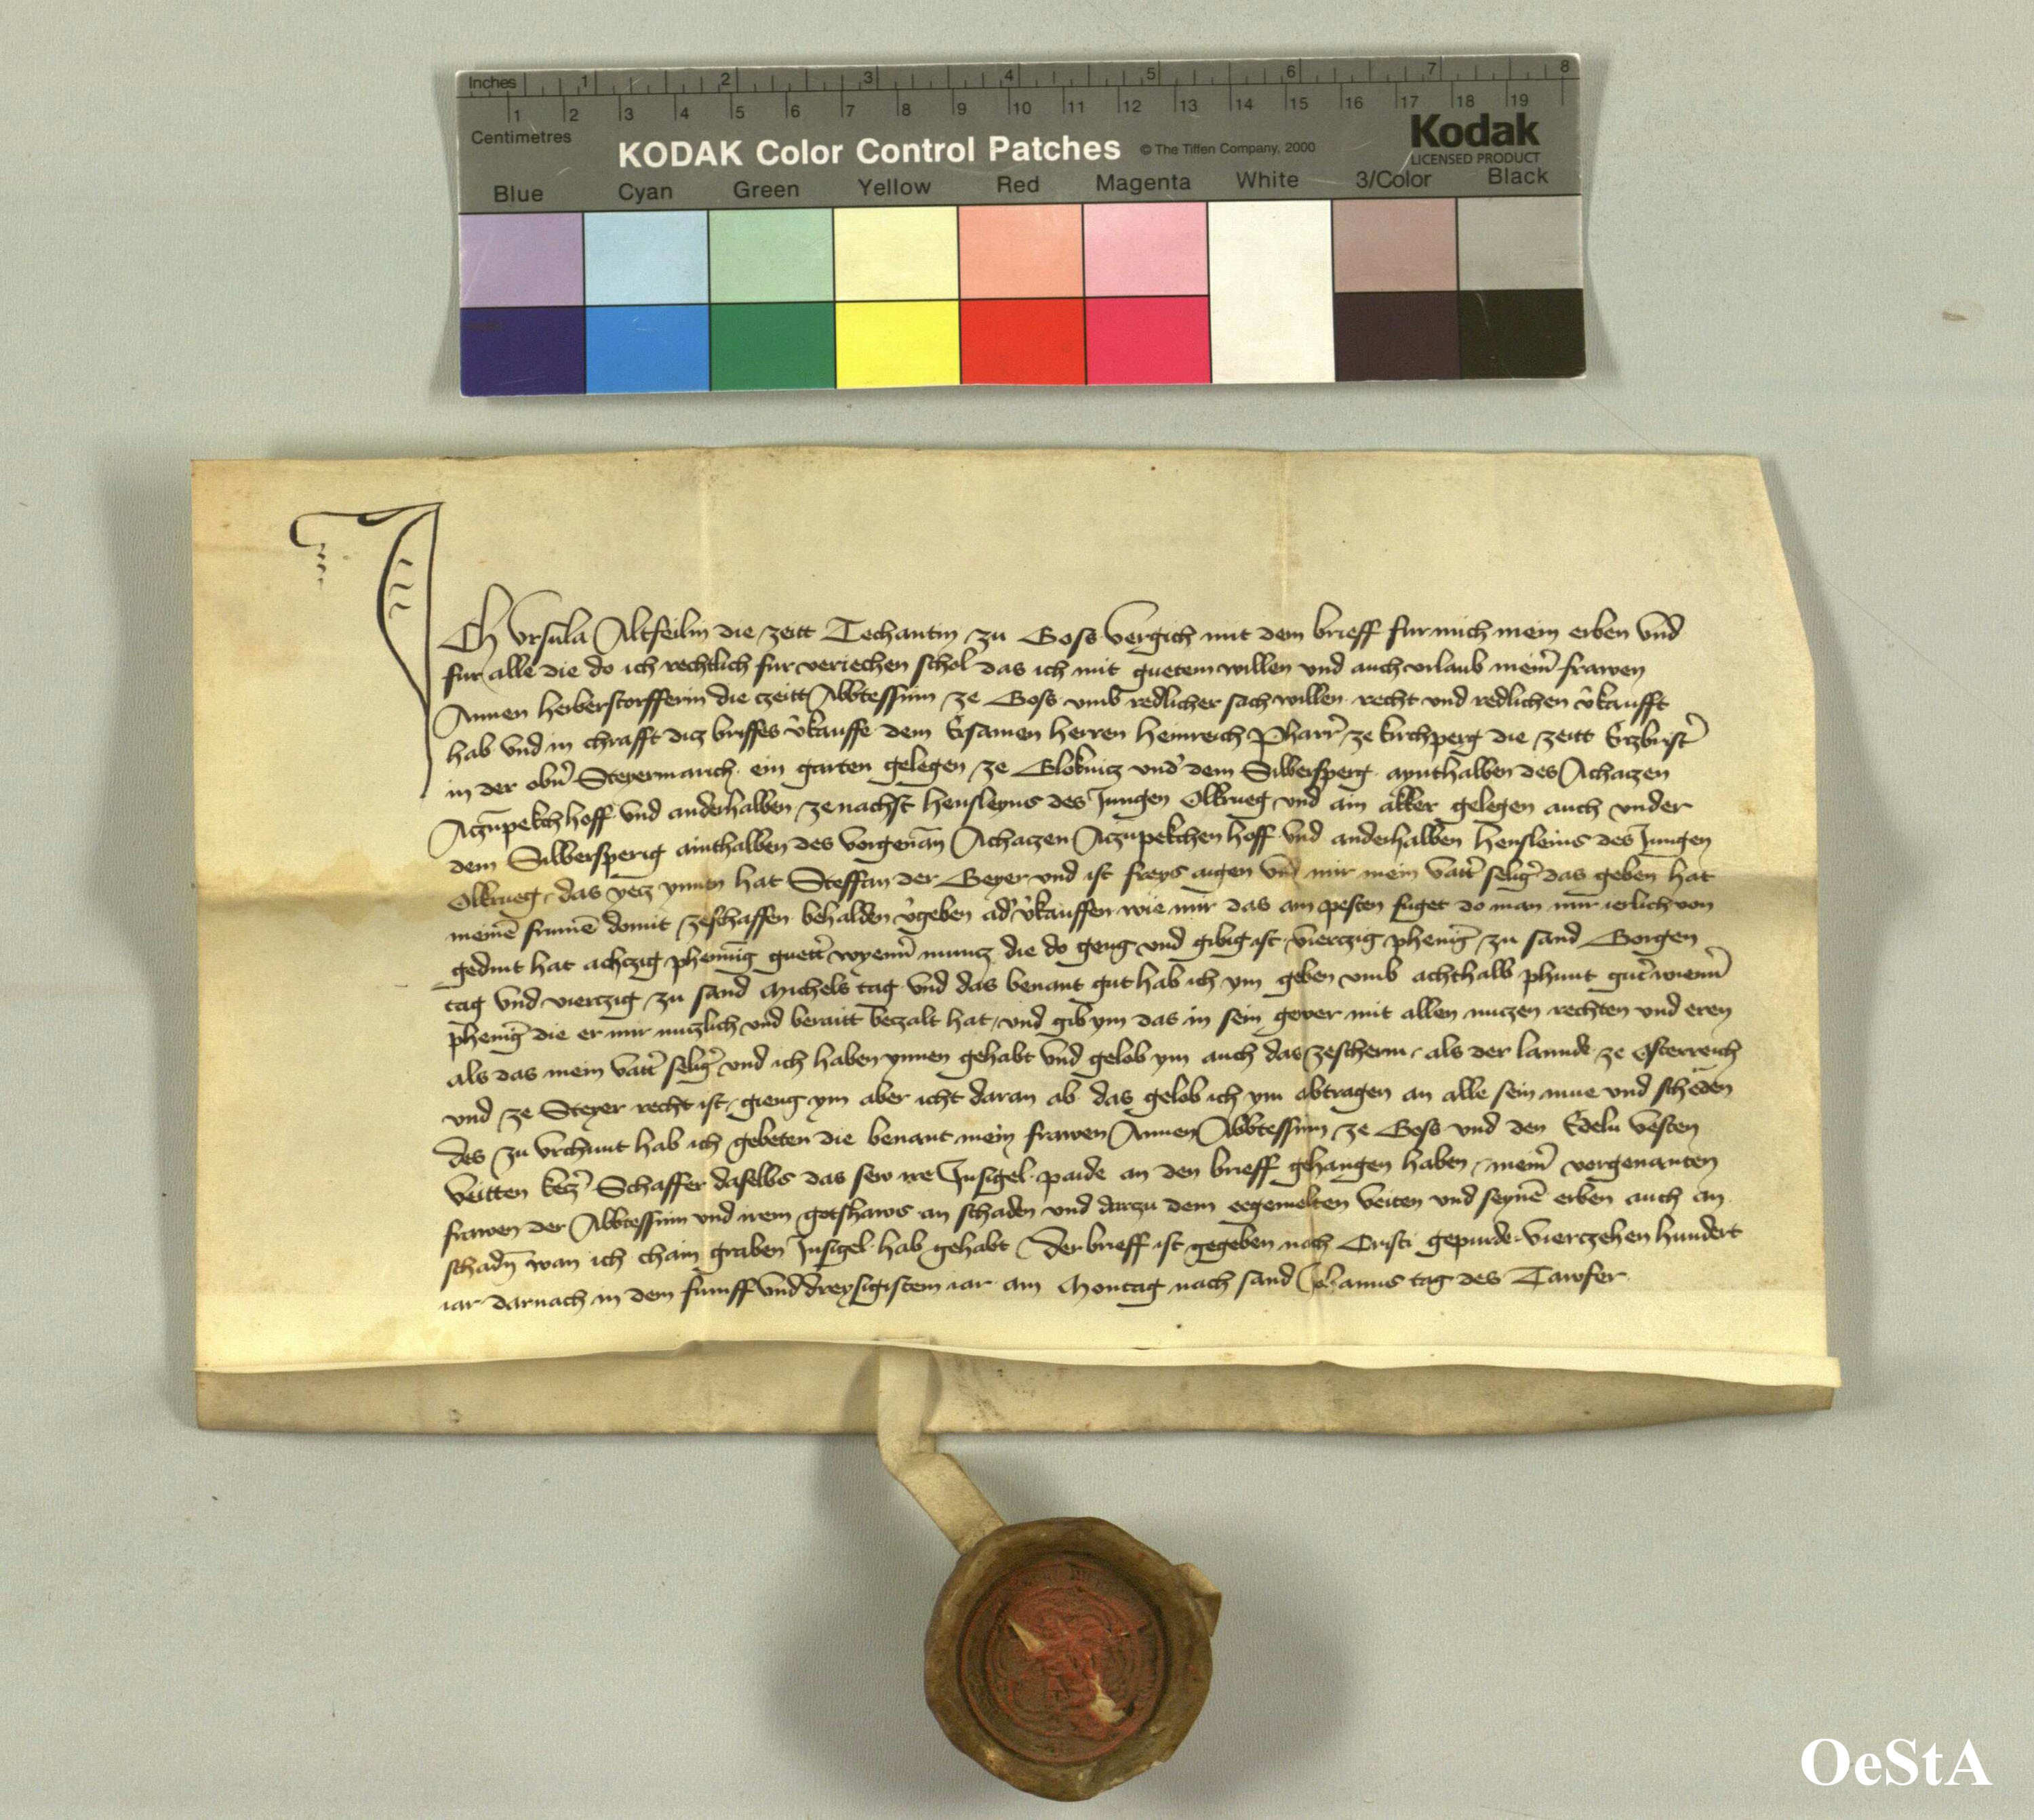 Inches 1 2 3 4 5 6 7 8
1 2 3 4 5 6 7 8 9 10 11 12 13 14 15 16 17 18 19
Centimetres
KODAK Color Control Patches © The Tiffen Company, 2000 Kodak
LICENSED PRODUCT
Blue Cyan Green Yellow Red Magenta White 3/Color Black
Ich Ursula Altfeilin die zeitt Techantin zu Goss vergich mit dem brieff fur mich mein erben und
fur alle die do ich rechtlich fur veriechen schol das ich mit guetem willen und auch urlaub meiner frawen
Annen herberstorfferin die czeitt Abbtessinn ze Goss umb redlicher sach willen recht und redlichen v̉kaufft
hab und in chrafft dicz briffes v̉kauffe dem Ersamen herren heinreich Pharr̉ ze kirchperg die zeitt Erzbrist̉
in der obn̉ Steyermarich ein garten gelegen ze Gloknicz und̉ dem Silbersperg aynthalben des Achaczen
Aczupekch hoff und anderhalben ze nachst hensleyns des Jungen Olkrueg und ain akker gelegen auch under
dem Silbersperig ainthalben des vorgenan̄ Achaczen Aczupekchen hoff und anderhalben hensleins des Jungen
Olkrueg das yecz ynnen hat Steffan der Geyer und ist freys aygen und mir mein vatt̉ selig̉ das geben hat
meine frumē domit ze schaffen behalden v̉geben ad̉ v̉kauffen wie mir das am pesten fuget do man mir ierlich von
gedint hat achczig phening guett̉ wyenn̉ muncz die do geng und gibig ist vierczig phenig̉ zu sand Gorgen
tag und vierczig zu sand Michels tag und das benant gut hab ich ym geben umb achthalb phunt gut̉ wienn̉
phenig̉ die er mir nuczlich und beraitt beczalt hat und gib ym das in sein gewer mit allen nuczen rechten und eren
als das mein vatt̉ selig̉ und ich haben ynnen gehabt und gelob ym auch das ze scherm als der lannde ze Osterreich
und ze Steyer recht ist gieng ym aber icht daran ab das gelob ich ym abtragen an alle sein mue und scheden
des zu urchunt hab ich gebeten die benant mein frawen Annen Abbtessinn ze Goss und den Edeln vesten
veitten Schaffer daselbs das sew ire Insigel paide an den brieff gehangen haben meiner vorgenanten
frawen der Abbtessinn und irem gotshaws an schaden und darzu dem eegemelten veiten und seynē erben auch an
schadn̄ wan ich chain graben Insigel hab gehabt Der brieff ist gegeben nach Cristi gepurde vierczehen hundert
iar darnach in dem funff und dreysigistem iar am Montag nach sand Johanns tag des Tawfer
OeStA